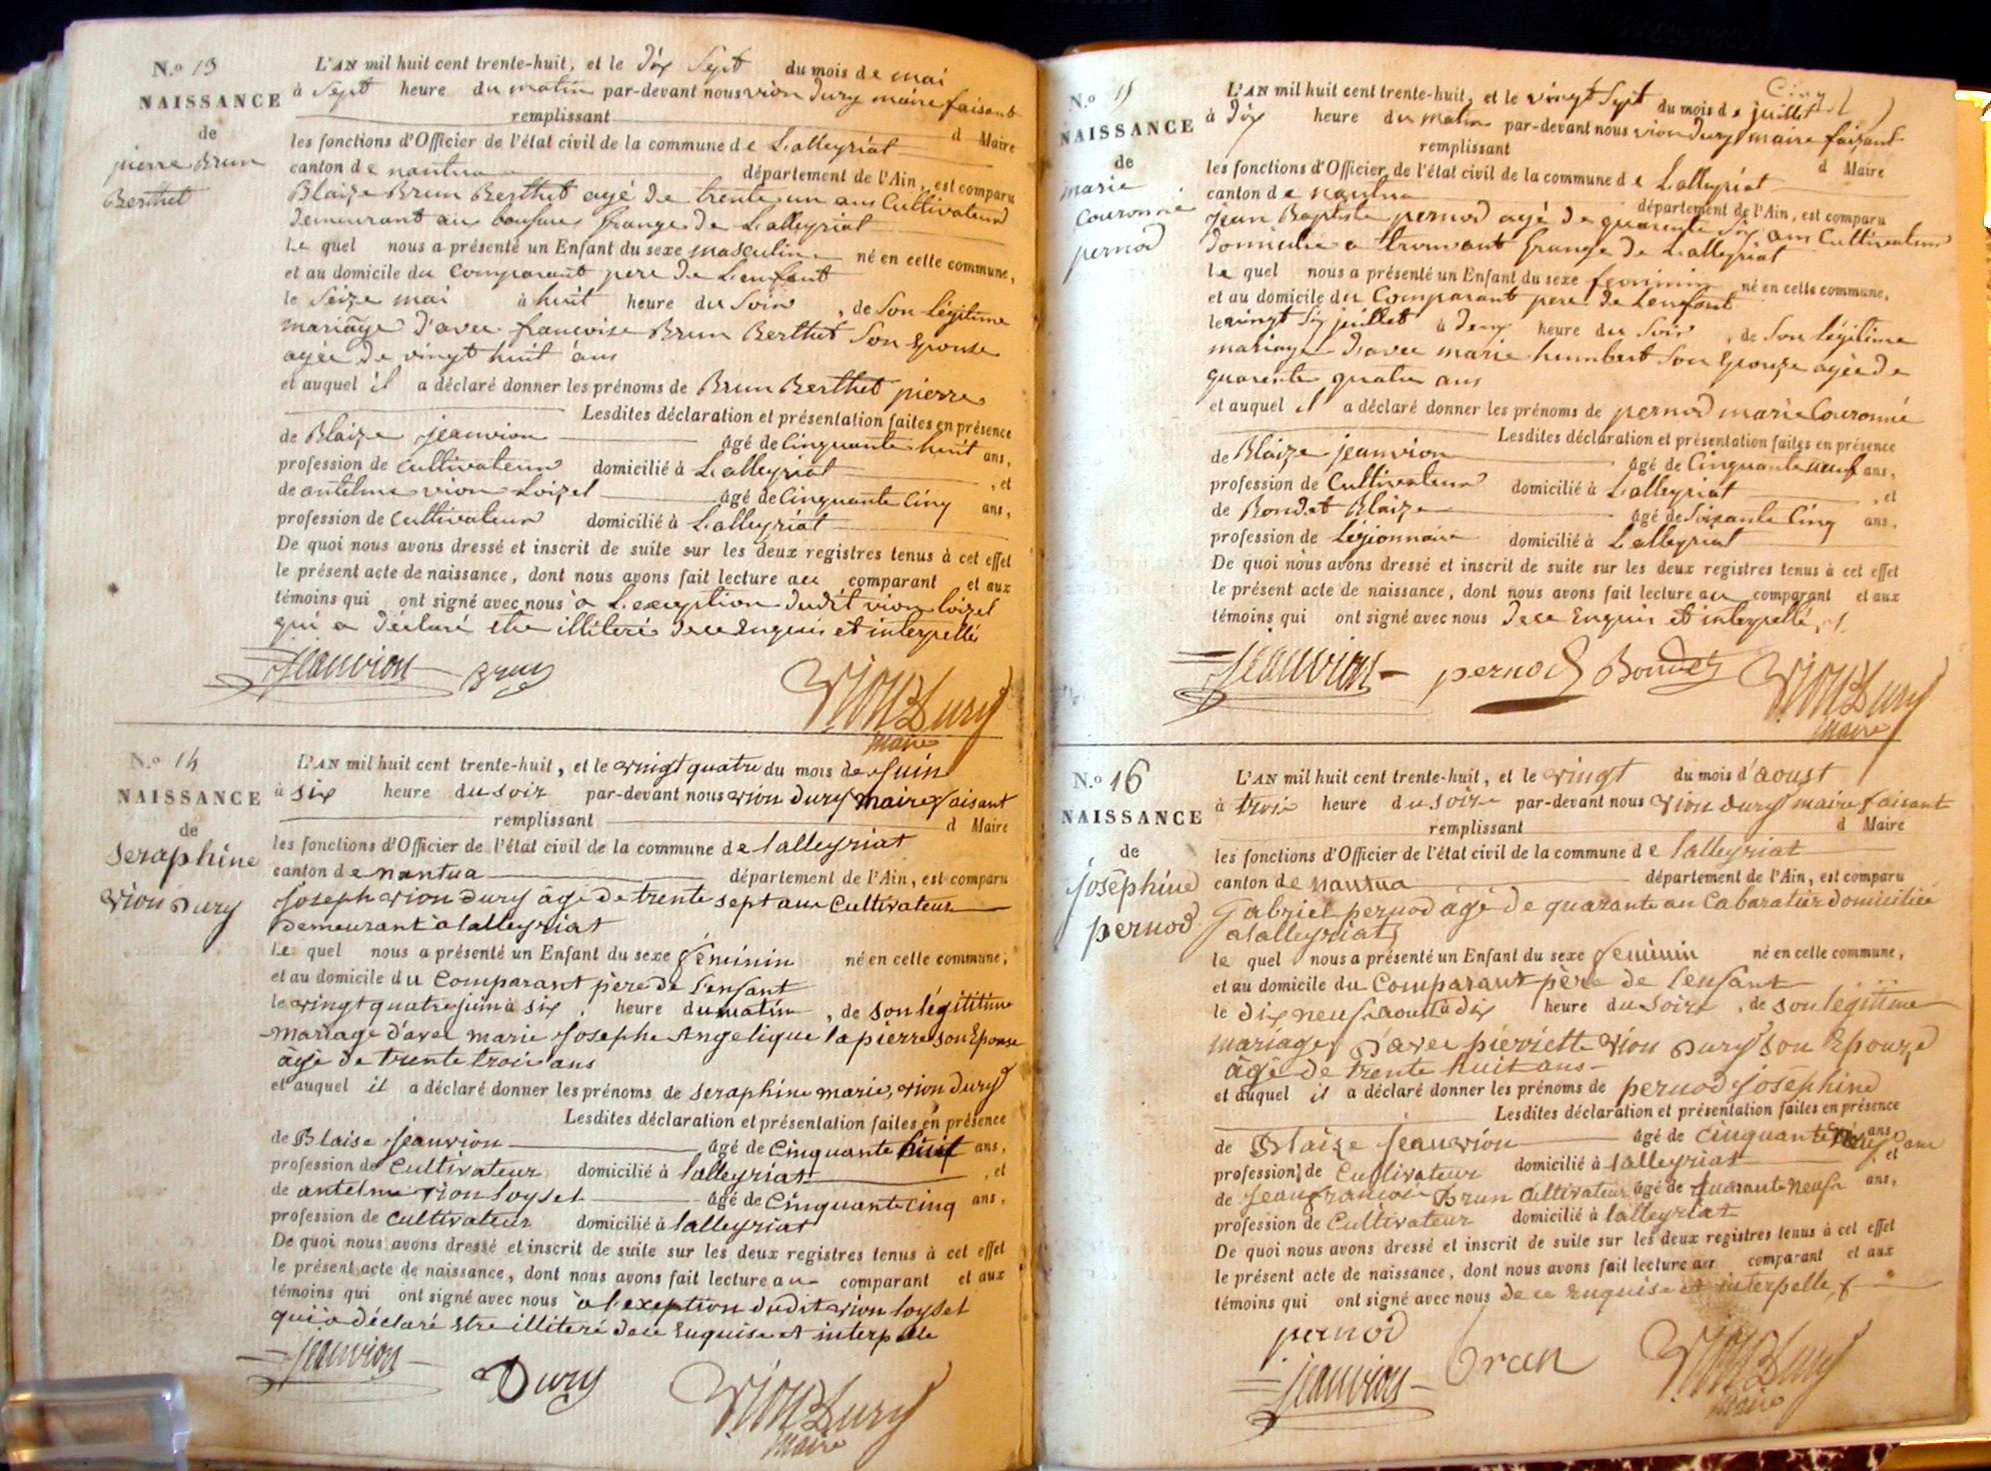 N.o 13
NAISSANCE
de
pierre Brun
Berthet
L'AN mil huit cent trente-huit, et le dix Sept du mois de mai
à Sept heure du matin par-devant nous vion dury maire faisant
remplissant d Maire
les fonctions d'Officier de l'état civil de la commune de Lalleyriat
canton de nantua département de l'Ain, est comparu
Blaize Brun Berthet agé de trente un ans Cultivateur
demeurant au Grange de Lalleyriat
Le quel nous a présenté un Enfant du sexe masculin né en cette commune,
et au domicile du Comparant pere de Lenfant
le Seize mai à huit heure du Soir, de Son légitime
mariage d'avec francoise Brun Berthet Son Epouse
agée de vingt huit ans
et auquel il a déclaré donner les prénoms de Brun Berthet pierre
Lesdites déclaration et présentation faites en présence
de Blaize jeanvion agé de Cinquante huit ans,
profession de Cultivateur domicilié à Lalleyriat, et
de antelme vion Loizel agé de Cinquante Cinq ans,
profession de Cultivateur domicilié à Lalleyriat
De quoi nous avons dressé et inscrit de suite sur les deux registres tenus à cet effet
le présent acte de naissance, dont nous avons fait lecture au comparant et aux
témoins qui ont signé avec nous a L'exception dudit vion loizel
qui a déclaré etre illiteré de ce Enquis et interpellé
Jeanvion Brun
Vion Dury
maire
N.o 14
NAISSANCE
de
Seraphine
vion Dury
L'AN mil huit cent trente-huit, et le vingt quatre du mois de Juin
à six heure du soir par-devant nous vion dury maire faisant
remplissant d Maire
les fonctions d'Officier de l'état civil de la commune de lalleyriat
canton de nantua département de l'Ain, est comparu
Joseph vion dury âgé de trente sept ans Cultivateur
Demeurant à lalleyriat
Le quel nous a présenté un Enfant du sexe féminin né en cette commune,
et au domicile du Comparant père de l'enfant
le vingt quatre juin à six heure du matin, de son légitime
mariage d'avec marie Josephe Angelique lapierre son Epouse
âgé de trente trois ans
et auquel il a déclaré donner les prénoms de seraphine marie, vion dury
Lesdites déclaration et présentation faites en présence
de Blaise Jeanvion agé de Cinquante huit ans,
profession de Cultivateur domicilié à lalleyriat, et
de antelme vion loysel agé de Cinquante cinq ans,
profession de cultivateur domicilié à lalleyriat
De quoi nous avons dressé et inscrit de suite sur les deux registres tenus à cet effet
le présent acte de naissance, dont nous avons fait lecture au comparant et aux
témoins qui ont signé avec nous à l'exeption dudit vion loysel
qui à déclaré Etre illiteré de ce Enquise et interpelle
Jeanvion Dury Vion Dury
maire
N.o 15
NAISSANCE
de
marie
Couronné
pernod
Cinq
L'AN mil huit cent trente-huit, et le vingt Sept du mois de juillet
à dix heure du matin par-devant nous vion dury maire faisant
remplissant d Maire
les fonctions d'Officier de l'état civil de la commune de Lalleyriat
canton de nantua département de l'Ain, est comparu
Jean Baptiste pernod agé de quarente Six ans Cultivateur
domicilié a Grange de Lalleyriat
Le quel nous a présenté un Enfant du sexe feminin né en cette commune,
et au domicile du Comparant pere de Lenfant
le vingt Six juillet à deux heure du Soir, de Son légitime
mariage d'avec marie humbert Son Epouze agée de
quarente quatre ans
et auquel il a déclaré donner les prénoms de pernod marie Couronné
Lesdites déclaration et présentation faites en présence
de Blaize jeanvion agé de Cinquante neuf ans,
profession de Cultivateur domicilié à Lalleyriat, et
de Bondet Blaize agé de Soixante Cinq ans,
profession de légionnaire domicilié à Lalleyriat
De quoi nous avons dressé et inscrit de suite sur les deux registres tenus à cet effet
le présent acte de naissance, dont nous avons fait lecture au comparant et aux
témoins qui ont signé avec nous de ce Enquis et interpellé,
Jeanvion pernod Bondet Vion Dury
maire
N.o 16
NAISSANCE
de
joséphine
pernod
L'AN mil huit cent trente-huit, et le vingt du mois d'aoust
à trois heure du soire par-devant nous vion dury maire faisant
remplissant d Maire
les fonctions d'Officier de l'état civil de la commune de lalleyriat
canton de nantua département de l'Ain, est comparu
Gabriel pernod âgé de quarante an Cabaratier domicilié
a lalleyriat
le quel nous a présenté un Enfant du sexe feminin né en cette commune,
et au domicile du Comparant père de l'enfant
le dix neuf aout à dix heure du soire, de son légitime
mariage d'avec pierrette vion Dury son Epouze
âgé de trente huit ans
et auquel il a déclaré donner les prénoms de pernod joséphine
Lesdites déclaration et présentation faites en présence
de Blaize Jeanvion agé de cinquante neuf ans
profession de Cultivateur domicilié à lalleyriat et
de Jean francois Brun Cultivateur agé de quarante neuf ans,
profession de Cultivateur domicilié à lalleyriat
De quoi nous avons dressé et inscrit de suite sur les deux registres tenus à cet effet
le présent acte de naissance, dont nous avons fait lecture au comparant et aux
témoins qui ont signé avec nous de ce Enquise et interpelle
pernod
Jeanvion brun Vion Dury
maire